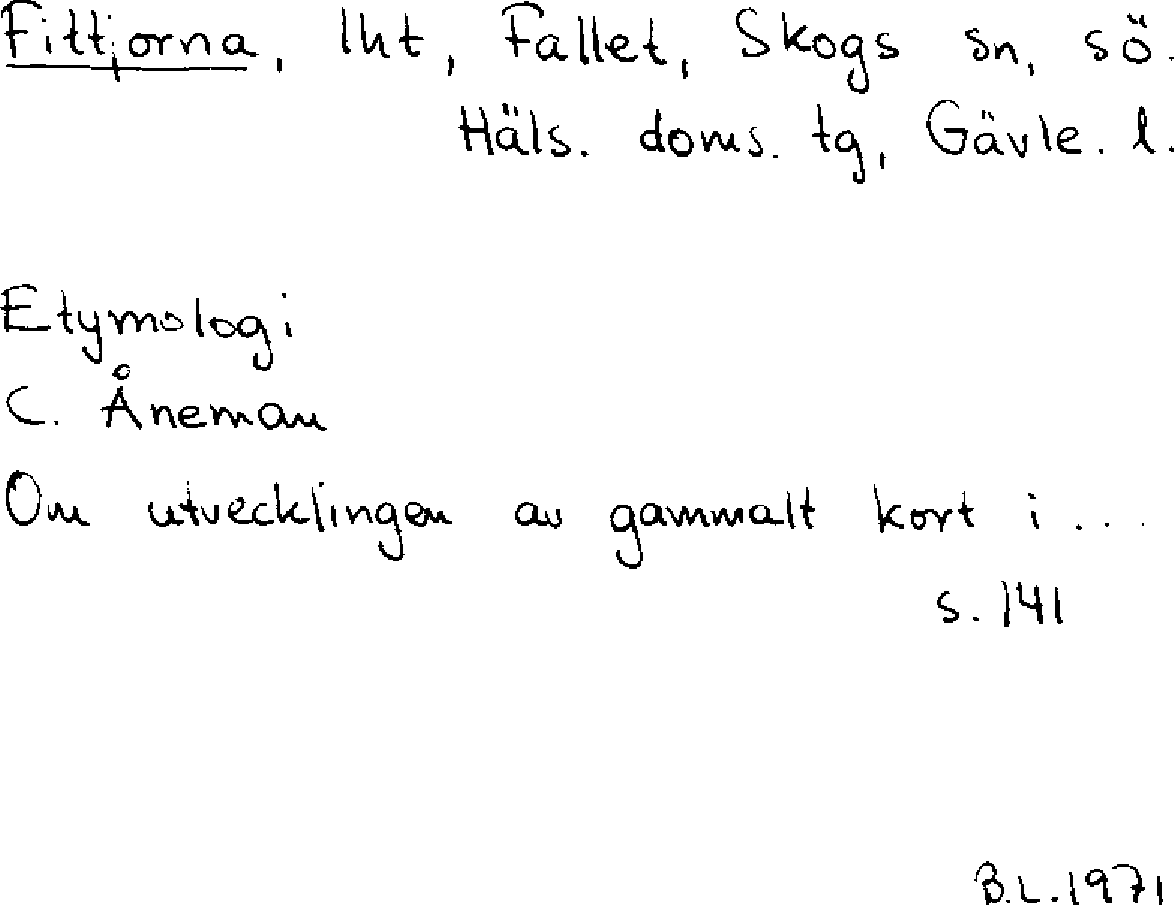 Fittjorna, lht, Fallet, Skogs sn, sö.
Häls. doms. tg, Gävle. l.
Etymologi
C. Åneman
Om utvecklingen av gammalt kort i...
s. 141
B.L.1971